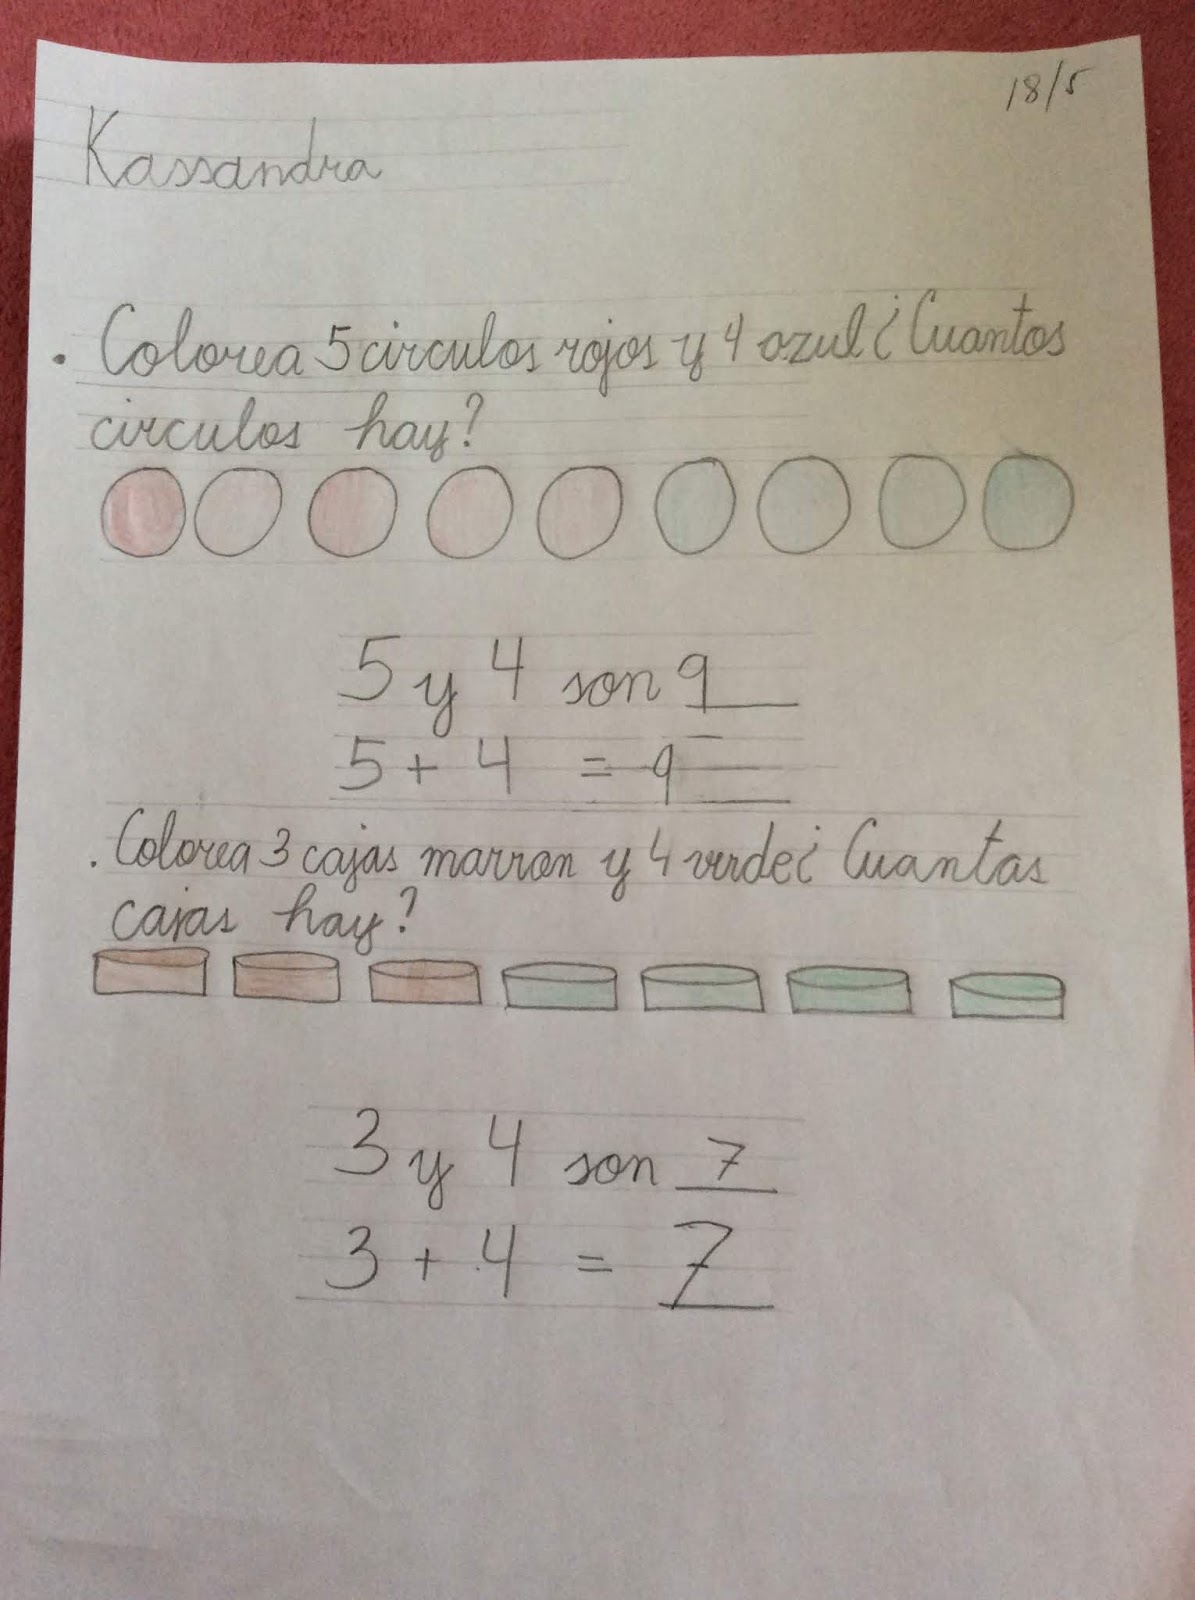 18/5
Kassandra
. Colorea 5 circulos rojos y 4 azul ¿ Cuantos
circulos hay?
5 y 4 son 9
5 + 4 = 9
. Colorea 3 cajas marron y 4 verde ¿ Cuantas
cajas hay?
3 y 4 son 7
3 + 4 = 7